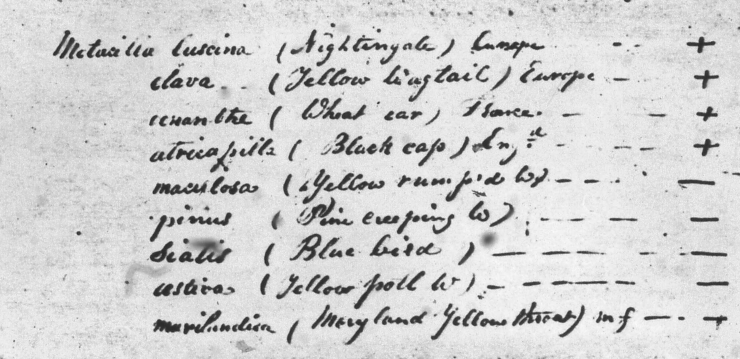 Motacilla Luscina (Nightingale) Europe - - +
clava (Yellow Wagtail) Europe - +
œnanthe (Wheat ear) France. - - +
atricapilla (Black cap) Engd - - - +
maculosa (Yellow rump'd W) - - - —
pinus (Pine creeping W) - - - —
Sialis (Blue bird) — — — — —
æstiva (Yellow poll W) - — — — —
marilandica (Maryland Yellow throat) m f — - +